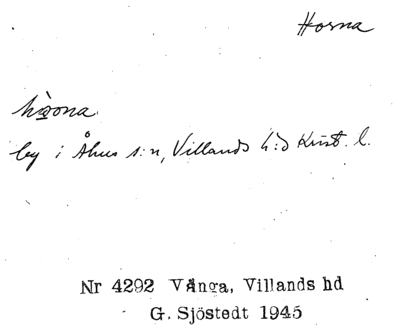 Horna
by i Åhus s:n, Villands h:d Krist. l.
Nr 4292 Vånga, Villands hd
G. Sjöstedt 1945